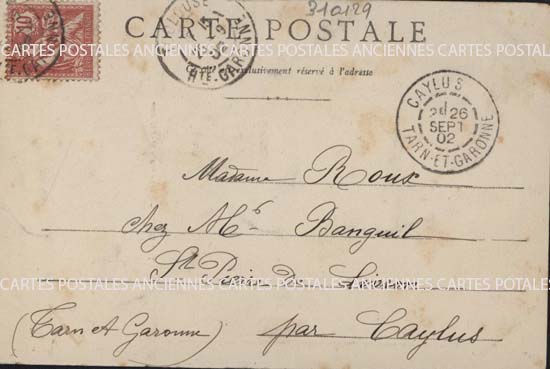 310129
CARTE POSTALE
exclusivement réservé à l'adresse
10
HTE-GARONNE
CAYLUS
26
SEPT
02
TARN-ET-GARONNE
Madame Roux
chez Mr Banquil
CARTES POSTALES ANCIENNES CARTES POSTALES ANCIENNES CARTES POSTALES ANCIENNES
St Pierre de Livron
CARTES POSTALES ANCIENNES CARTES POSTALES ANCIENNES CARTES POSTALES ANCIENNES
(Tarn et Garonne) par Caylus